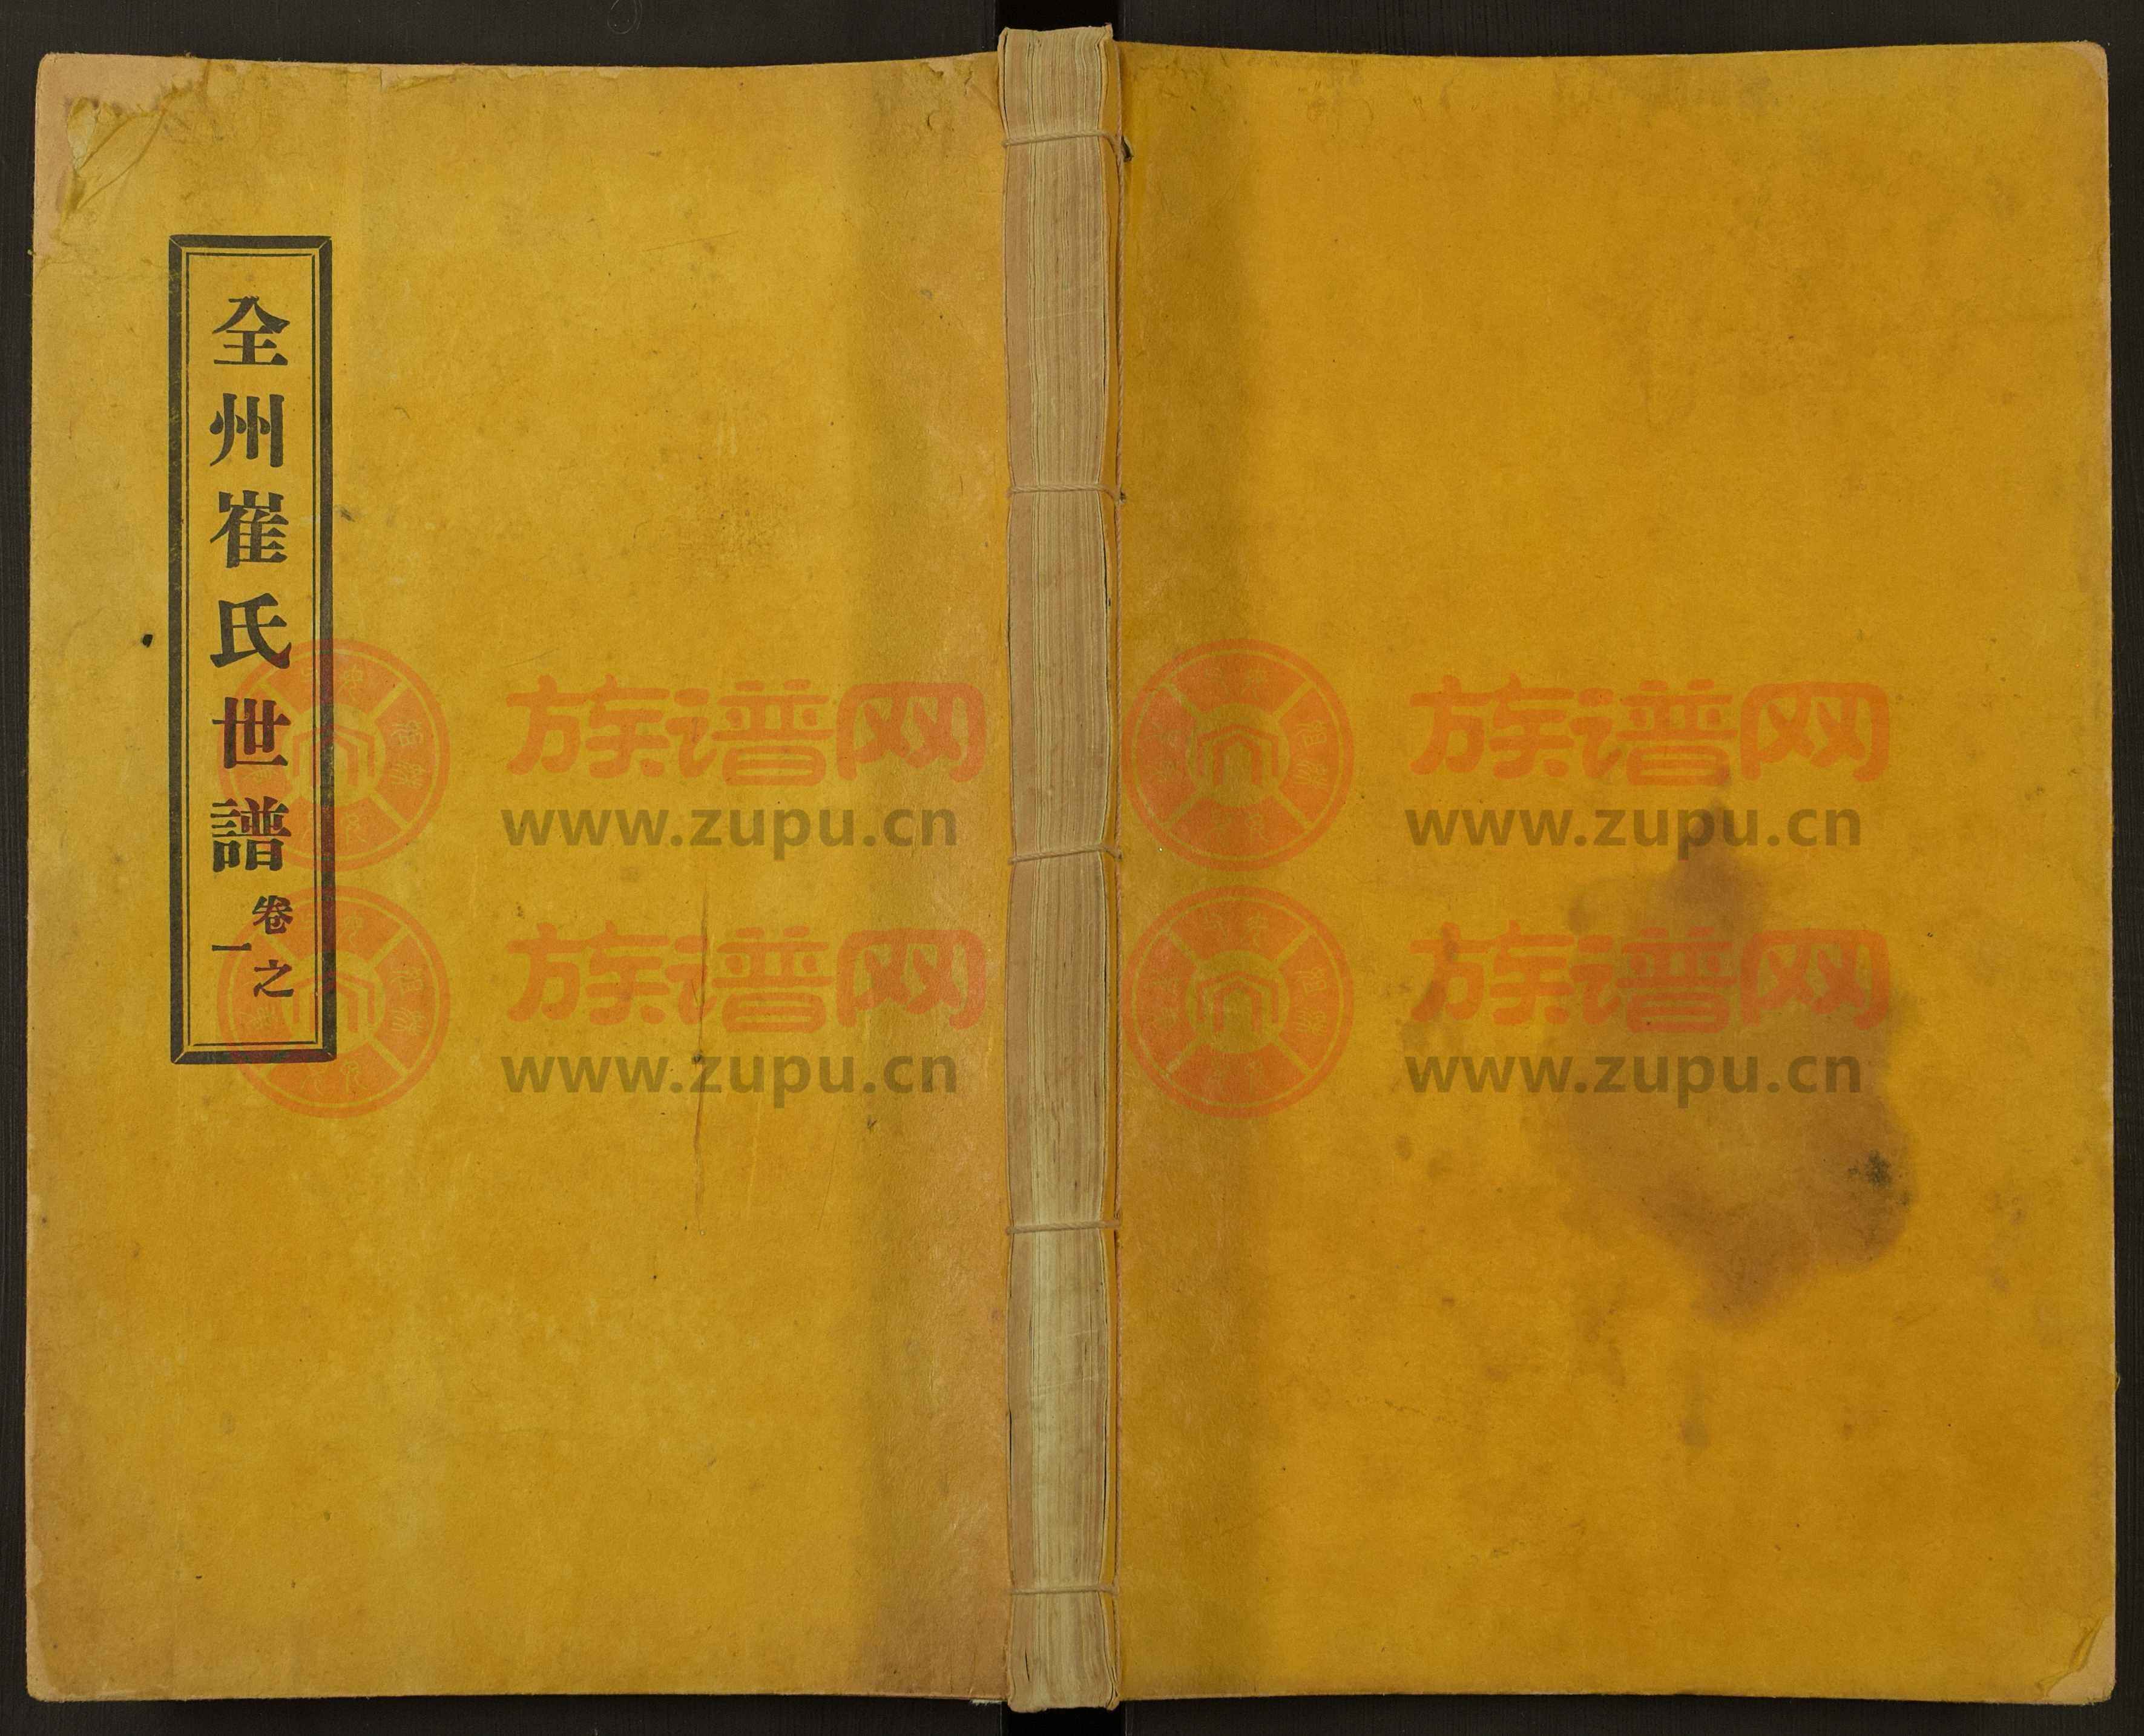 全州崔氏世譜
卷之
一
族谱网
www.zupu.cn
族谱网
www.zupu.cn
族谱网
www.zupu.cn
族谱网
www.zupu.cn